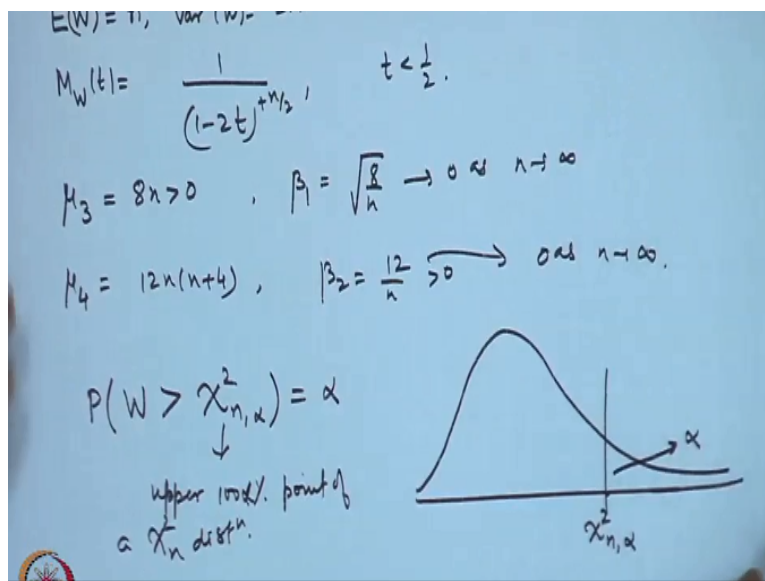 E(W) = n, Var (W) =
M_W(t) = 1 / (1-2t)^{+n/2}, t < 1/2.
μ_3 = 8n > 0, β_1 = √(8/n) → 0 as n → ∞
μ_4 = 12n(n+4), β_2 = 12/n > 0 → 0 as n → ∞.
P(W > χ²_{n,α}) = α
α
upper 100α% point of
a χ²_n distⁿ.
χ²_{n,α}